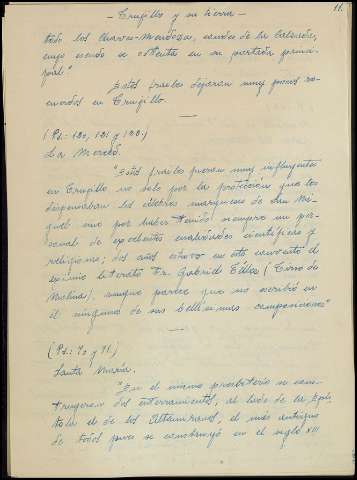 11.
- Trugillo y su tierra -
todo los Chaves-Mendoza, condes de la Calzada,
cuyo escudo se ostenta en su portada princi-
pal"
Estos frailes dejaron muy pocos re-
cuerdos en Trugillo.
(Ps.: 120, 121 y 122.)
La Merced.
"Estos frailes fueron muy influyentes
en Trugillo no solo por la protección que les
dispensaban los célebres marqueses de San Mi-
guel sino por haber tenido siempre un per-
sonal de excelentes cualidades científicas y
religiosas; dos años estuvo en este convento el
eximio literato Fr. Gabriel Téllez (Tirso de
Molina), aunque parece que no escribió en
él ninguna de sus bellísimas composiciones"
(Ps.: 70 y 71.)
Santa María.
"En el mismo presbiterio se cons-
truyeron dos enterramientos, al lado de la Epís-
tola el de los Altamiranos, el más antiguo
de todos pues se construyó en el siglo XIII